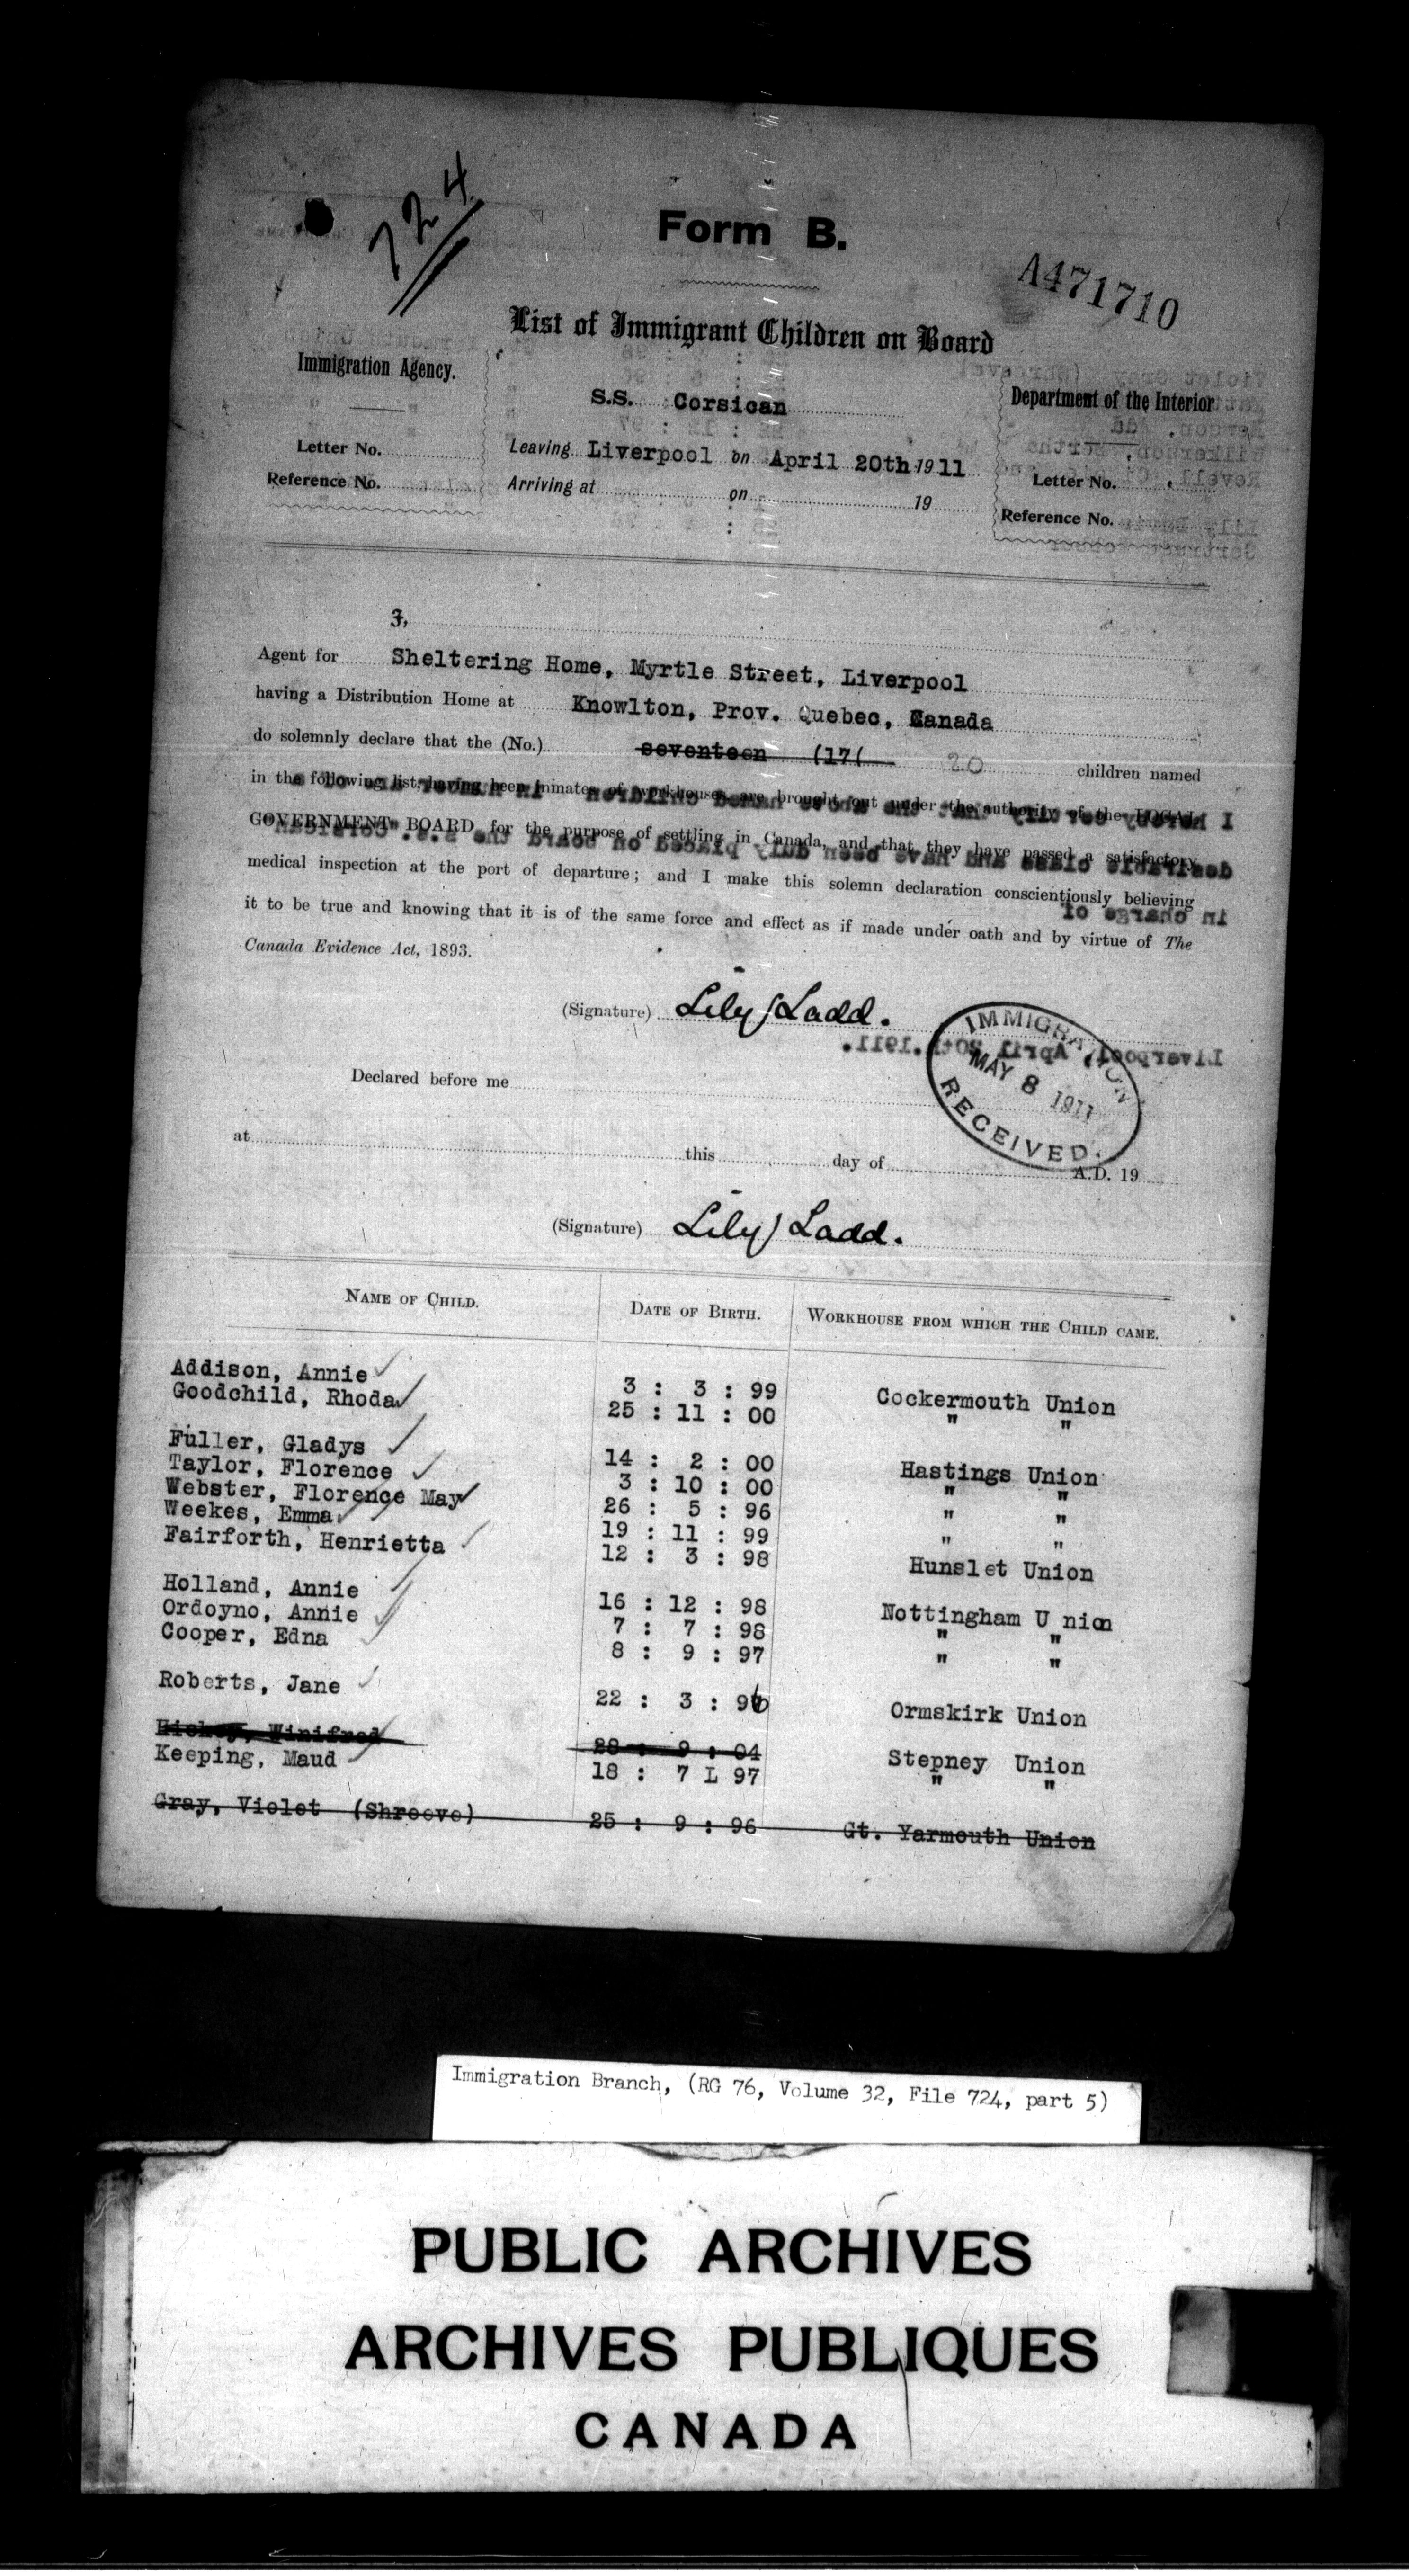 724
Form B.
A471710
List of Immigrant Children on Board
Immigration Agency.
S.S. Corsican
Department of the Interior
Letter No.
Leaving Liverpool on April 20th 1911
Letter No.
Reference No.
Arriving at on 19
Reference No.
I,
Agent for Sheltering Home, Myrtle Street, Liverpool
having a Distribution Home at Knowlton, Prov. Quebec, Canada
do solemnly declare that the (No.) seventeen (17( 20 children named
in the following list having been inmates of workhouses are brought out under the authority of the LOCAL
GOVERNMENT BOARD for the purpose of settling in Canada, and that they have passed a satisfactory
medical inspection at the port of departure; and I make this solemn declaration conscientiously believing
it to be true and knowing that it is of the same force and effect as if made under oath and by virtue of The
Canada Evidence Act, 1893.
(Signature) Lily Ladd.
IMMIGRATION
MAY 8 1911
RECEIVED.
Declared before me
at this day of A.D. 19
(Signature) Lily Ladd.
NAME OF CHILD. DATE OF BIRTH. WORKHOUSE FROM WHICH THE CHILD CAME.
Addison, Annie 3 : 3 : 99 Cockermouth Union
Goodchild, Rhoda 25 : 11 : 00 " "
Fuller, Gladys 14 : 2 : 00 Hastings Union
Taylor, Florence 3 : 10 : 00 " "
Webster, Florence May 26 : 5 : 96 " "
Weekes, Emma 19 : 11 : 99 " "
Fairforth, Henrietta 12 : 3 : 98 Hunslet Union
Holland, Annie 16 : 12 : 98 Nottingham U nion
Ordoyno, Annie 7 : 7 : 98 " "
Cooper, Edna 8 : 9 : 97 " "
Roberts, Jane 22 : 3 : 96 Ormskirk Union
Winifred 28 : 9 : 04 Stepney Union
Keeping, Maud 18 : 7 L 97 " "
Gray, Violet (Shreeve) 25 : 9 : 96 Gt. Yarmouth Union
Immigration Branch, (RG 76, Volume 32, File 724, part 5)
PUBLIC ARCHIVES
ARCHIVES PUBLIQUES
CANADA